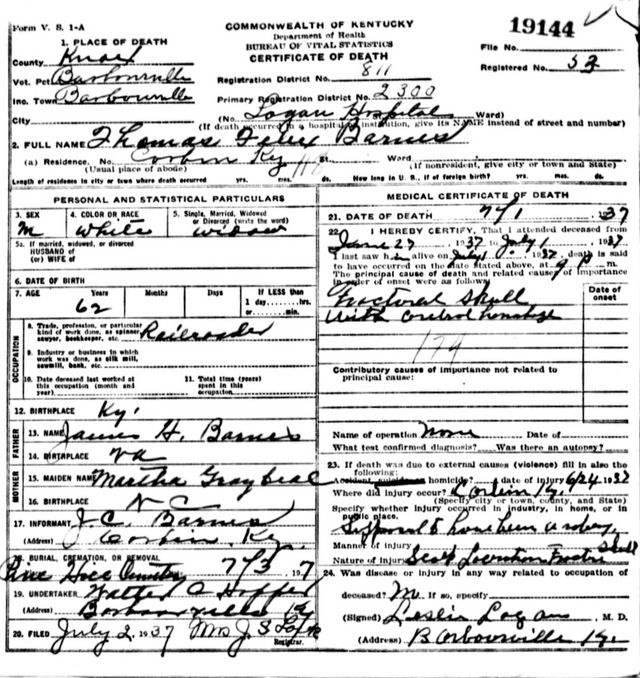 Form V. S. 1-A
COMMONWEALTH OF KENTUCKY
Department of Health
BUREAU OF VITAL STATISTICS
CERTIFICATE OF DEATH
19144
File No.
Registered No. 53
1. PLACE OF DEATH
County Knox
Vot. Pct. Barbourville
Inc. Town Barbourville
City
Registration District No. 811
Primary Registration District No. 2300
(No. Logan Hospital Ward)
(If death occurred in a hospital or institution, give its NAME instead of street and number)
2. FULL NAME Thomas Barnes
(a) Residence. No. Corbin Ky St. Ward
(Usual place of abode) (If nonresident, give city or town and State)
Length of residence in city or town where death occurred yrs. mos. ds. How long in U. S., if of foreign birth? yrs. mos. ds.
PERSONAL AND STATISTICAL PARTICULARS
3. SEX M
4. COLOR OR RACE White
5. Single, Married, Widowed or Divorced (write the word) Widow
5a. If married, widowed, or divorced
HUSBAND of
(or) WIFE of
6. DATE OF BIRTH
7. AGE Years 62 Months Days If LESS than 1 day, hrs. or min.
OCCUPATION
8. Trade, profession, or particular
kind of work done, as spinner,
sawyer, bookkeeper, etc. Railroader
9. Industry or business in which
work was done, as silk mill,
sawmill, bank, etc.
10. Date deceased last worked at
this occupation (month and
year)
11. Total time (years)
spent in this
occupation
12. BIRTHPLACE Ky.
FATHER
13. NAME James H. Barnes
14. BIRTHPLACE Va
MOTHER
15. MAIDEN NAME Martha Graybeal
16. BIRTHPLACE N C
17. INFORMANT J. C. Barnes
(Address) Corbin Ky.
18. BURIAL, CREMATION, OR REMOVAL
Pine Hill Cemetery 7/3 1937
19. UNDERTAKER Walter C Hopper
(Address) Barbourville Ky
20. FILED July 2, 1937 Mrs J. S.
Registrar.
MEDICAL CERTIFICATE OF DEATH
21. DATE OF DEATH 7/1 1937
22. I HEREBY CERTIFY, That I attended deceased from
June 27 1937 to July 1 1937
I last saw him alive on July 1 1937, death is said
to have occurred on the date stated above, at 9 P m.
The principal cause of death and related causes of importance
in order of onset were as follows:
Date of onset
Fractural Skull
with
174
Contributory causes of importance not related to
principal cause:
Name of operation None Date of
What test confirmed diagnosis? Was there an autopsy?
23. If death was due to external causes (violence) fill in also the
following:
Accident, suicide or homicide? date of injury 6/24 1937
Where did injury occur? Corbin Ky.
(Specify city or town, county, and State)
Specify whether injury occurred in industry, in home, or in
public place.
to have been
Manner of injury
Nature of injury Skull
24. Was disease or injury in any way related to occupation of
deceased? If so, specify
(Signed) Leslie Logan M. D.
(Address) Barbourville Ky.